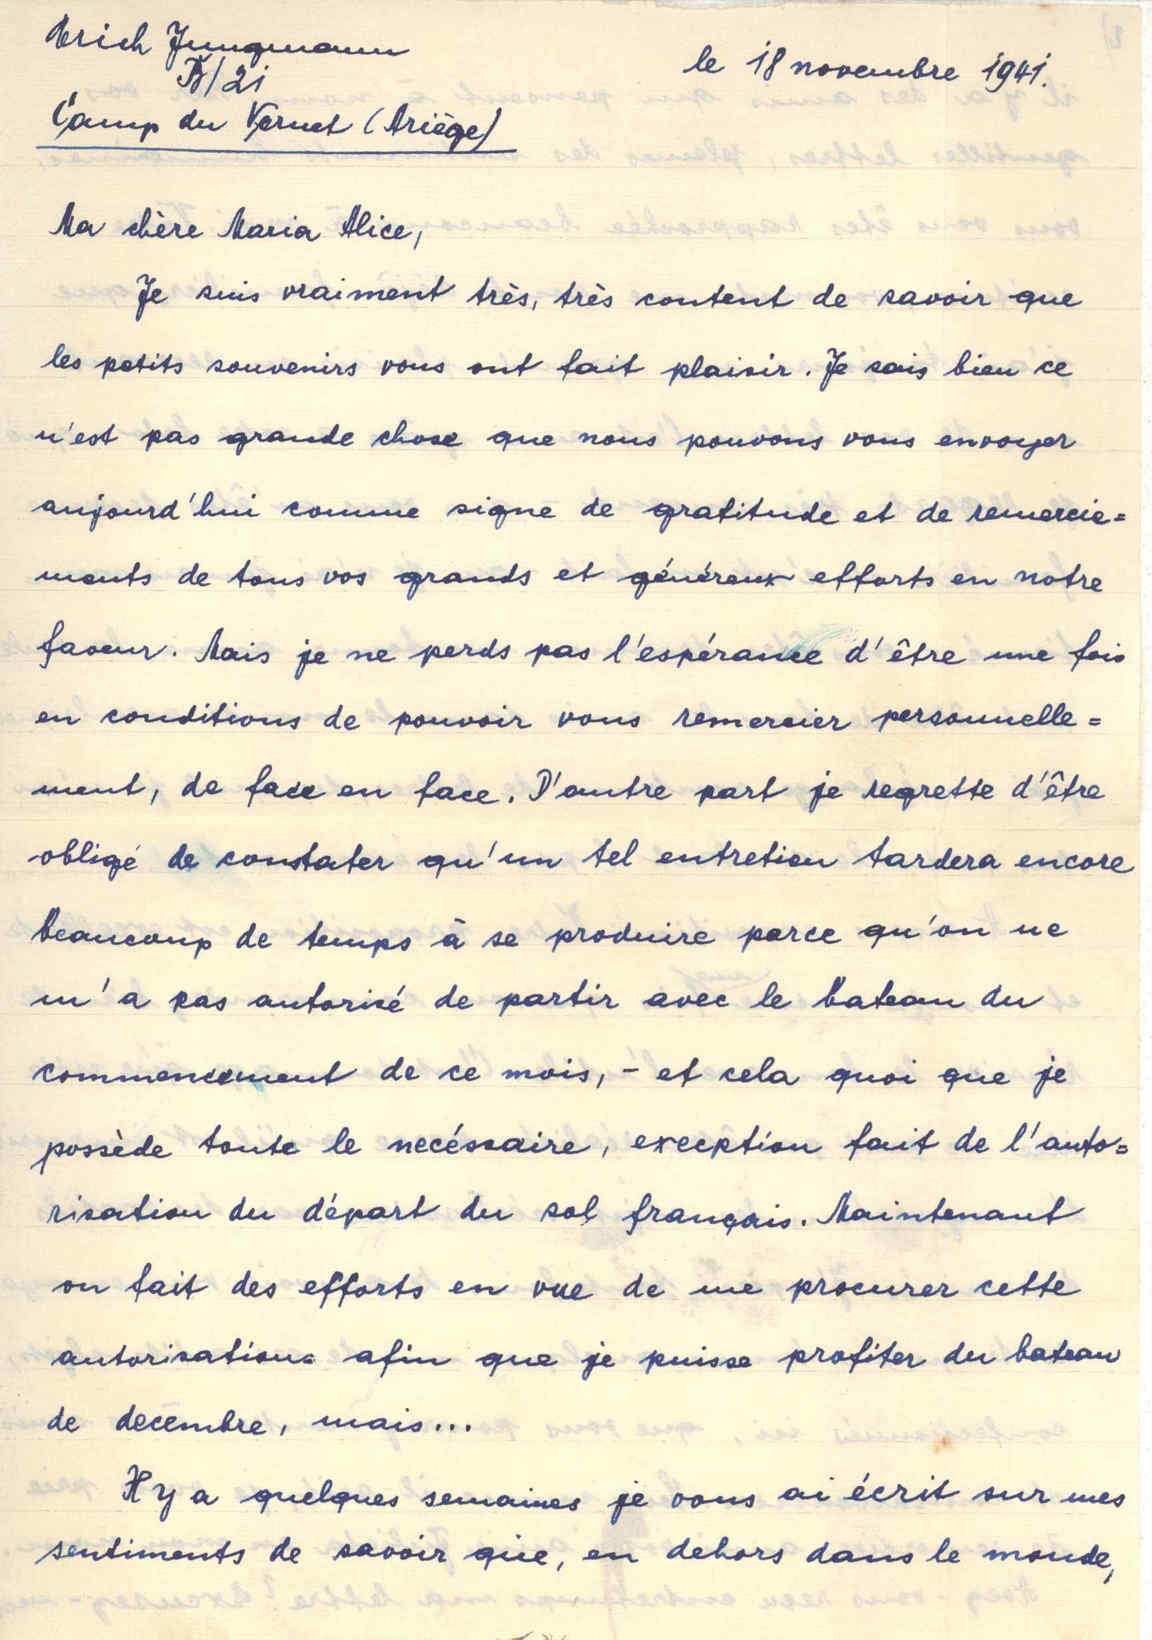 Erich Jungmann
B/21
Camp du Vernet (Ariège)
le 18 novembre 1941.
Ma chère Maria Alice,
Je suis vraiment très, très content de savoir que
les petits souvenirs vous ont fait plaisir. Je sais bien ce
n'est pas grande chose que nous pouvons vous envoyer
aujourd'hui comme signe de gratitude et de remercie=
ments de tous vos grands et généreux efforts en notre
faveur. Mais je ne perds pas l'espérance d'être une fois
en conditions de pouvoir vous remercier personnelle=
ment, de face en face. D'autre part je regrette d'être
obligé de constater qu'un tel entretien tardera encore
beaucoup de temps à se produire parce qu'on ne
m'a pas autorisé de partir avec le bateau du
commencement de ce mois, - et cela quoi que je
possède toute le necéssaire, exception fait de l'auto=
risation du départ du sol français. Maintenant
on fait des efforts en vue de me procurer cette
autorisation afin que je puisse profiter du bateau
de decembre, mais...
Il y a quelques semaines je vous ai écrit sur mes
sentiments de savoir que, en dehors dans le monde,